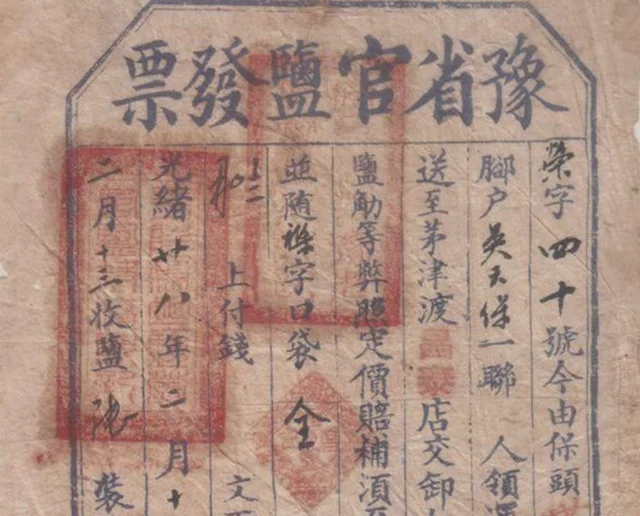 豫省官鹽發票
榮字四十號今由保頭
腳户吳天保一聯 人領運
送至茅津渡 店交卸
鹽觔等弊照定價賠補湏
並随 字口袋全
上付錢 文
光緒廿八年二月十
二月十三收鹽 裝